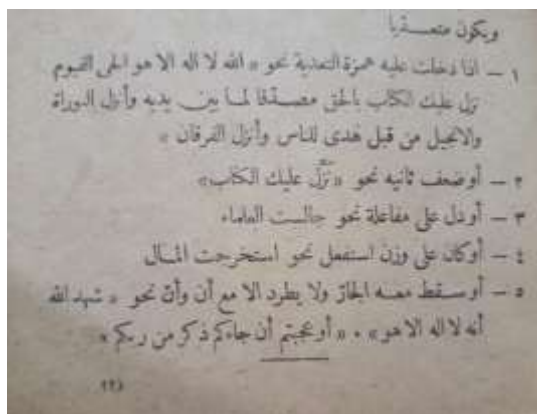 ويكون متعـــديا
١ — اذا دخلت عليه همزة التعدية نحو « الله لا اله الا هو الحى القيوم
نزل عليك الكتاب بالحق مصـدقا لمـا بين يديه وأنزل التوراة
والانجيل من قبل هدى للناس وأنزل الفرقان »
٢ — أوضعف ثانيه نحو «نَزَّل عليك الكتاب»
٣ — أودل على مفاعلة نحو جالست العلماء
٤ — أوكان على وزن استفعل نحو استخرجت المـال
٥ — أوسـقط معـه الجارّ ولا يطرد الا مع أن وأنّ نحو « شهد الله
أنه لا اله الا هو» ، « أوعجبتم أن جاءكم ذكر من ربكم »